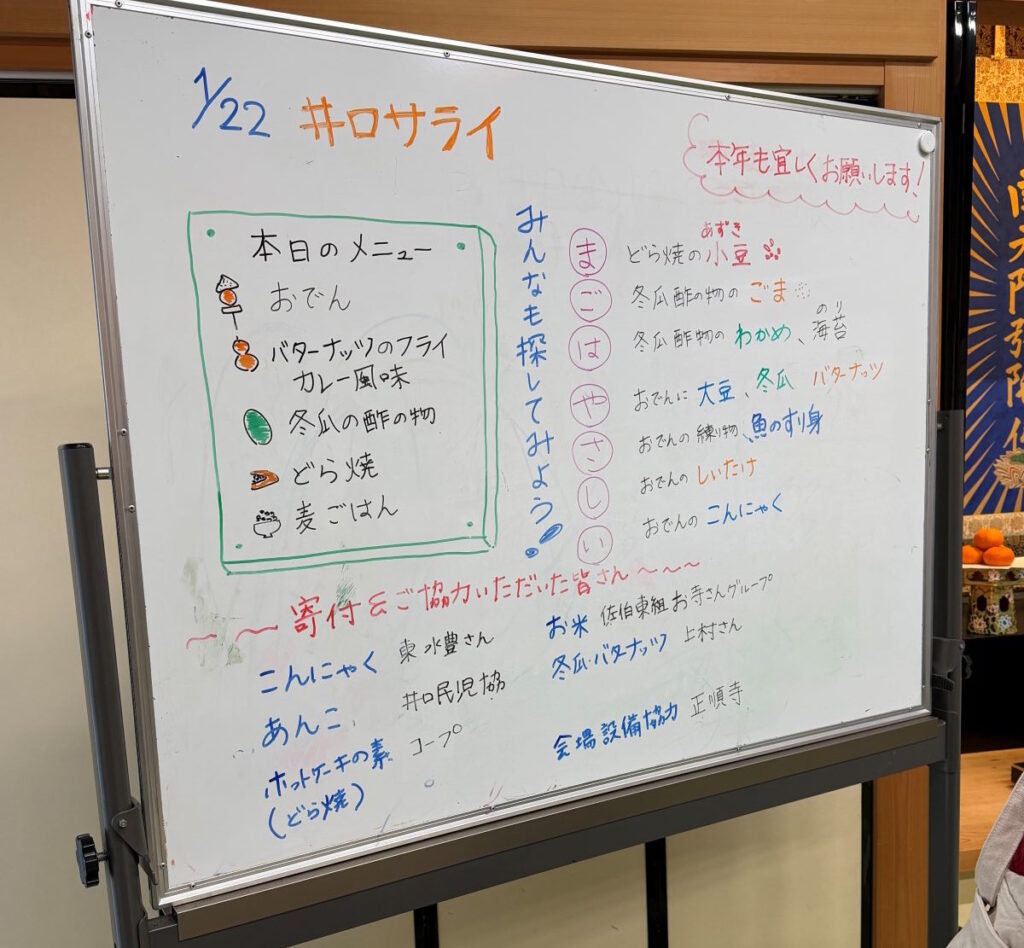 1/22 井口サライ
本年も宜しくお願いします!
本日のメニュー
おでん
バターナッツのフライ
カレー風味
冬瓜の酢の物
どら焼
麦ごはん
みんなも探してみよう!
ま どら焼の小豆
あずき
ご 冬瓜酢の物の ごま
は 冬瓜酢物の わかめ、海苔
のり
や おでんに 大豆、冬瓜 バターナッツ
さ おでんの練り物、魚のすり身
し おでんの しいたけ
い おでんの こんにゃく
〜〜寄付&ご協力いただいた皆さん〜〜〜
こんにゃく 東 水豊さん
あんこ 井口民児協
ホットケーキの素 コープ
(どら焼)
お米 佐伯東組お寺さんグループ
冬瓜・バターナッツ 上村さん
会場設備協力 正順寺